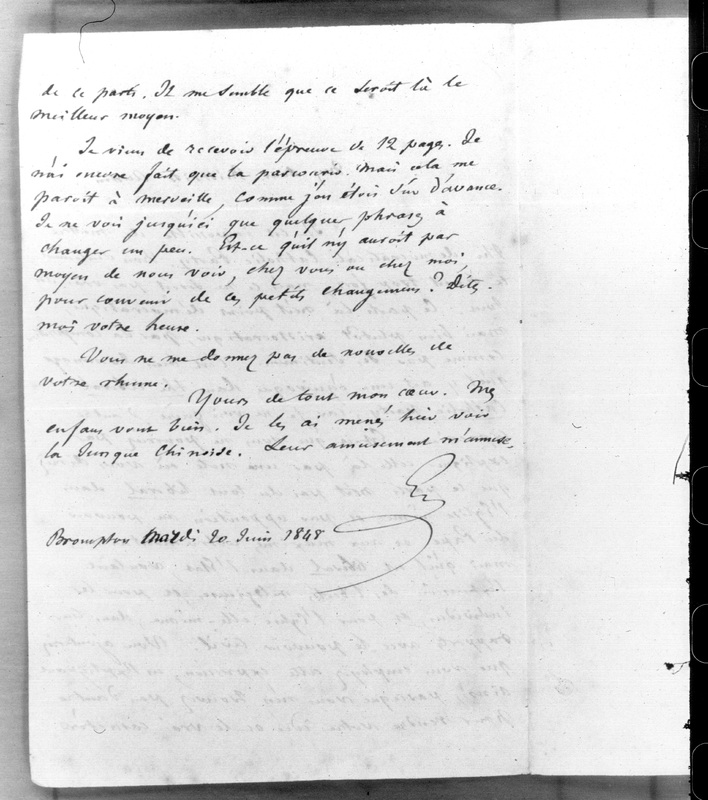 de ce parti. Il me semble que ce seroit là le
meilleur moyen.
Je viens de recevoir l'épreuve de 12 pages. Je
n'ai encore fait que la parcourir. Mais cela me
paroit à merveille, comme j'en étois sûr d'avance.
Je ne vois jusqu'ici que quelques phrases à
changer un peu. Est-ce qu'il n'y auroit pas
moyen de nous voir, chez vous ou chez moi
pour convenir de ces petits changemens? Dites-
moi votre heure.
Vous ne me donnez pas de nouvelles de
votre rhume.
Yours de tout mon cœur. Mes
enfans vont bien. Je les ai menés hier voir
la Junque Chinoise. Leur amusement m'amuse.
Brompton Mardi 20 Juin 1848